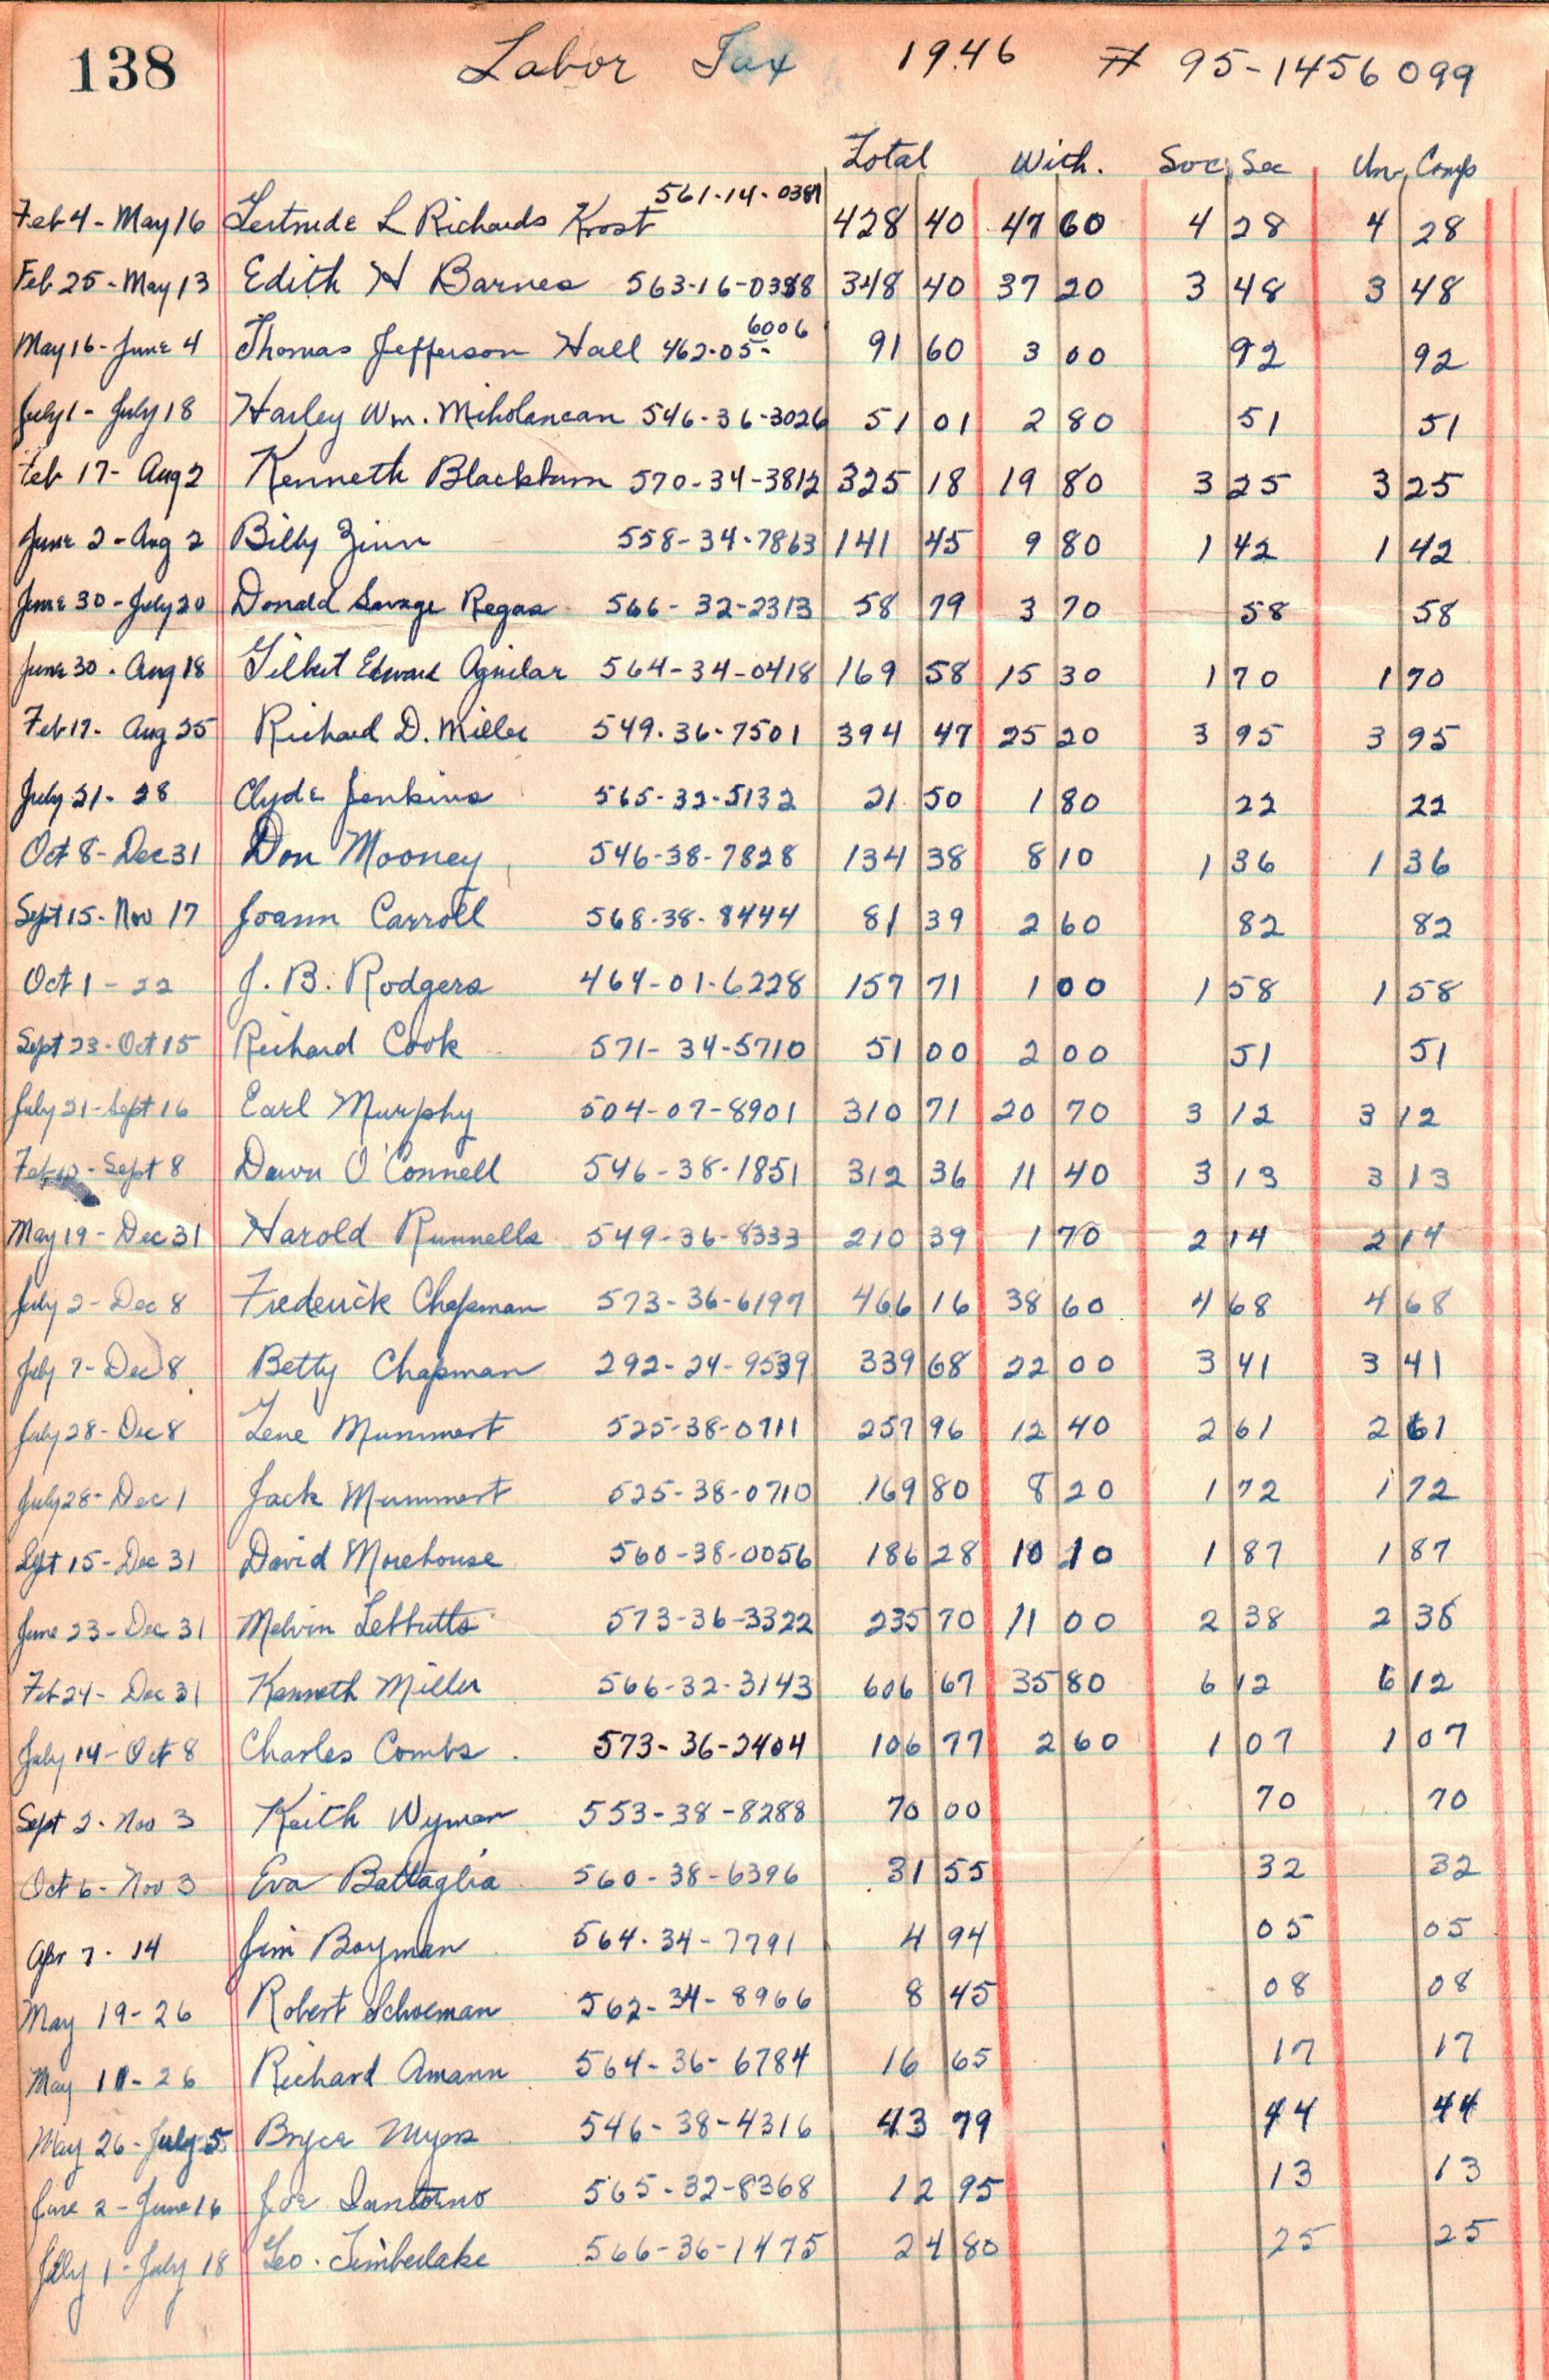 138 Labor Tax 1946 # 95-1456099
Total With. Soc Sec Un Comp
Feb 4 - May 16 Gertrude L Richards Krost 561-14-0381 428 40 47 60 4 28 4 28
Feb 25 - May 13 Edith H Barnes 563-16-0388 348 40 37 20 3 48 3 48
May 16 - June 4 Thomas Jefferson Hall 462-05-6006 91 60 3 00 92 92
July 1 - July 18 Harley Wm. 546-36-3026 51 01 2 80 51 51
Feb 17 - Aug 2 Kenneth Blackburn 570-34-3812 325 18 19 80 3 25 3 25
June 2 - Aug 2 Billy Zinn 558-34-7863 141 45 9 80 1 42 1 42
June 30 - July 20 Donald Savage Regas 566-32-2313 58 79 3 70 58 58
June 30 - Aug 18 Gilbert Edward Aguilar 564-34-0418 169 58 15 30 1 70 1 70
Feb 17 - Aug 25 Richard D. Miller 549-36-7501 394 47 25 20 3 95 3 95
July 21 - 28 Clyde Jenkins 565-32-5132 21 50 1 80 22 22
Oct 8 - Dec 31 Don Mooney 546-38-7828 134 38 8 10 1 36 1 36
Sept 15 - Nov 17 Joann Carroll 568-38-8444 81 39 2 60 82 82
Oct 1 - 22 J. B. Rodgers 464-01-6228 157 71 1 00 1 58 1 58
Sept 23 - Oct 15 Richard Cook 571-34-5710 51 00 2 00 51 51
July 21 - Sept 16 Earl Murphy 504-07-8901 310 71 20 70 3 12 3 12
Feb - Sept 8 Dawn O'Connell 546-38-1851 312 36 11 40 3 13 3 13
May 19 - Dec 31 Harold Runnells 549-36-8333 210 39 1 70 2 14 2 14
July 2 - Dec 8 Frederick Chapman 573-36-6197 466 16 38 60 4 68 4 68
July 7 - Dec 8 Betty Chapman 292-24-9539 339 68 22 00 3 41 3 41
July 28 - Dec 8 Gene Mummert 525-38-0711 257 96 12 40 2 61 2 61
July 28 - Dec 1 Jack Mummert 525-38-0710 169 80 8 20 1 72 1 72
Sept 15 - Dec 31 David Morehouse 560-38-0056 186 28 10 10 1 87 1 87
June 23 - Dec 31 Melvin Tebbutts 573-36-3322 235 70 11 00 2 38 2 38
Feb 24 - Dec 31 Kenneth Miller 566-32-3143 606 67 35 80 6 12 6 12
July 14 - Oct 8 Charles Combs 573-36-2404 106 77 2 60 1 07 1 07
Sept 2 - Nov 3 Keith Wyman 553-38-8288 70 00 70 70
Oct 6 - Nov 3 Eva Battaglia 560-38-6396 31 55 32 32
Apr 7 - 14 Jim Boyman 564-34-7791 4 94 05 05
May 19 - 26 Robert Schoeman 562-34-8966 8 45 08 08
May 11 - 26 Richard Amann 564-36-6784 16 65 17 17
May 26 - July 5 Bryce Myers 546-38-4316 43 79 44 44
June 2 - June 16 Joe Santorno 565-32-8368 12 95 13 13
July 1 - July 18 Geo. Timberlake 566-36-1475 24 80 25 25